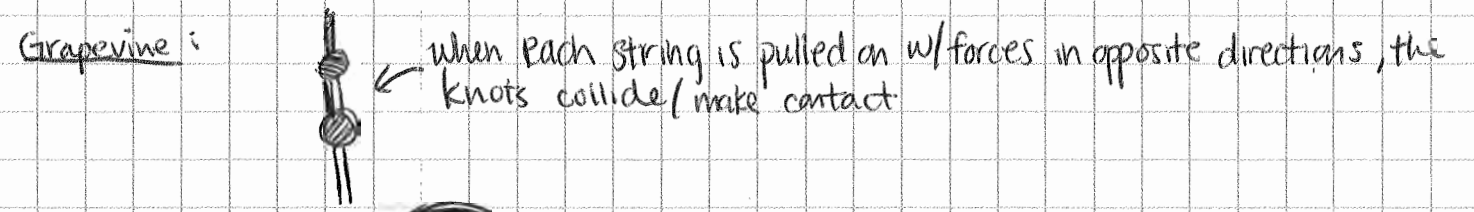 Grapevine :
when each string is pulled on w/ forces in opposite directions, the
knots collide/make contact